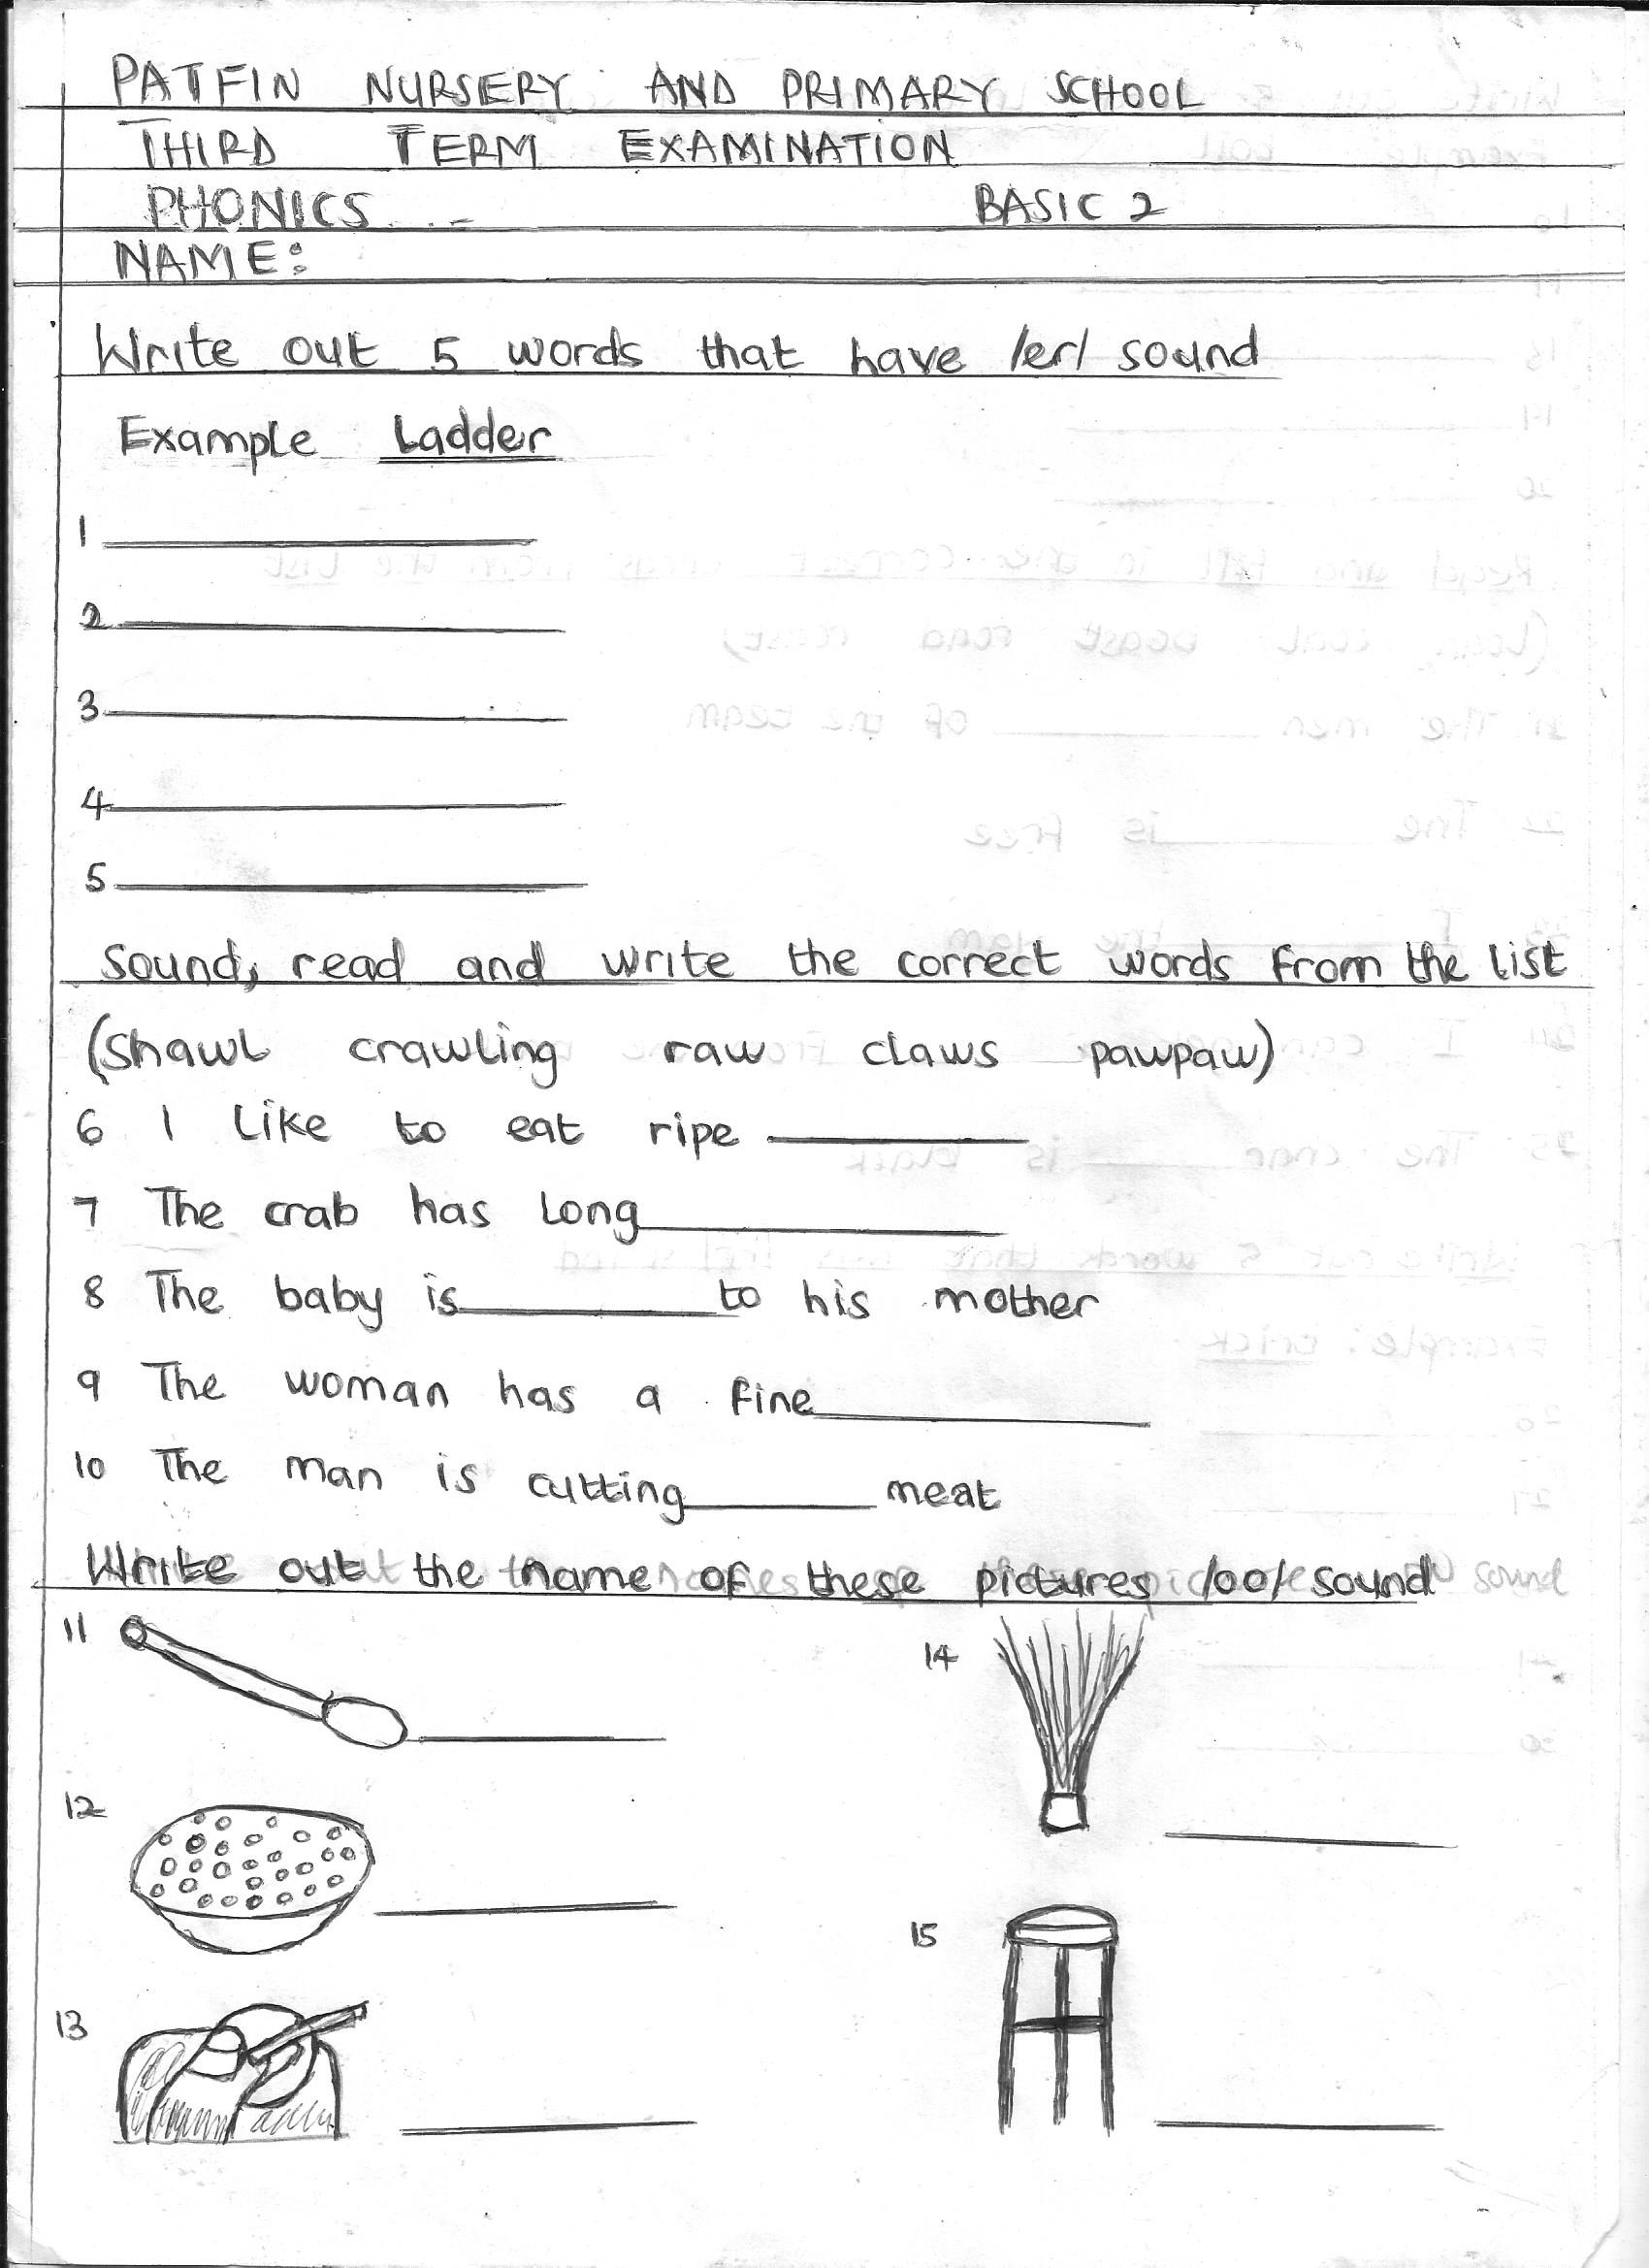 PATFIN NURSERY AND PRIMARY SCHOOL
THIRD TERM EXAMINATION
PHONICS BASIC 2
NAME:
Write out 5 words that have /er/ sound
Example Ladder
1
2
3
4
5
Sound, read and write the correct words from the list
(Shawl crawling raw claws pawpaw)
6 I like to eat ripe
7 The crab has long
8 The baby is to his mother
9 The woman has a fine
10 The man is cutting meat
Write out the name of these pictures /oo/ sound
11
14
12
15
13